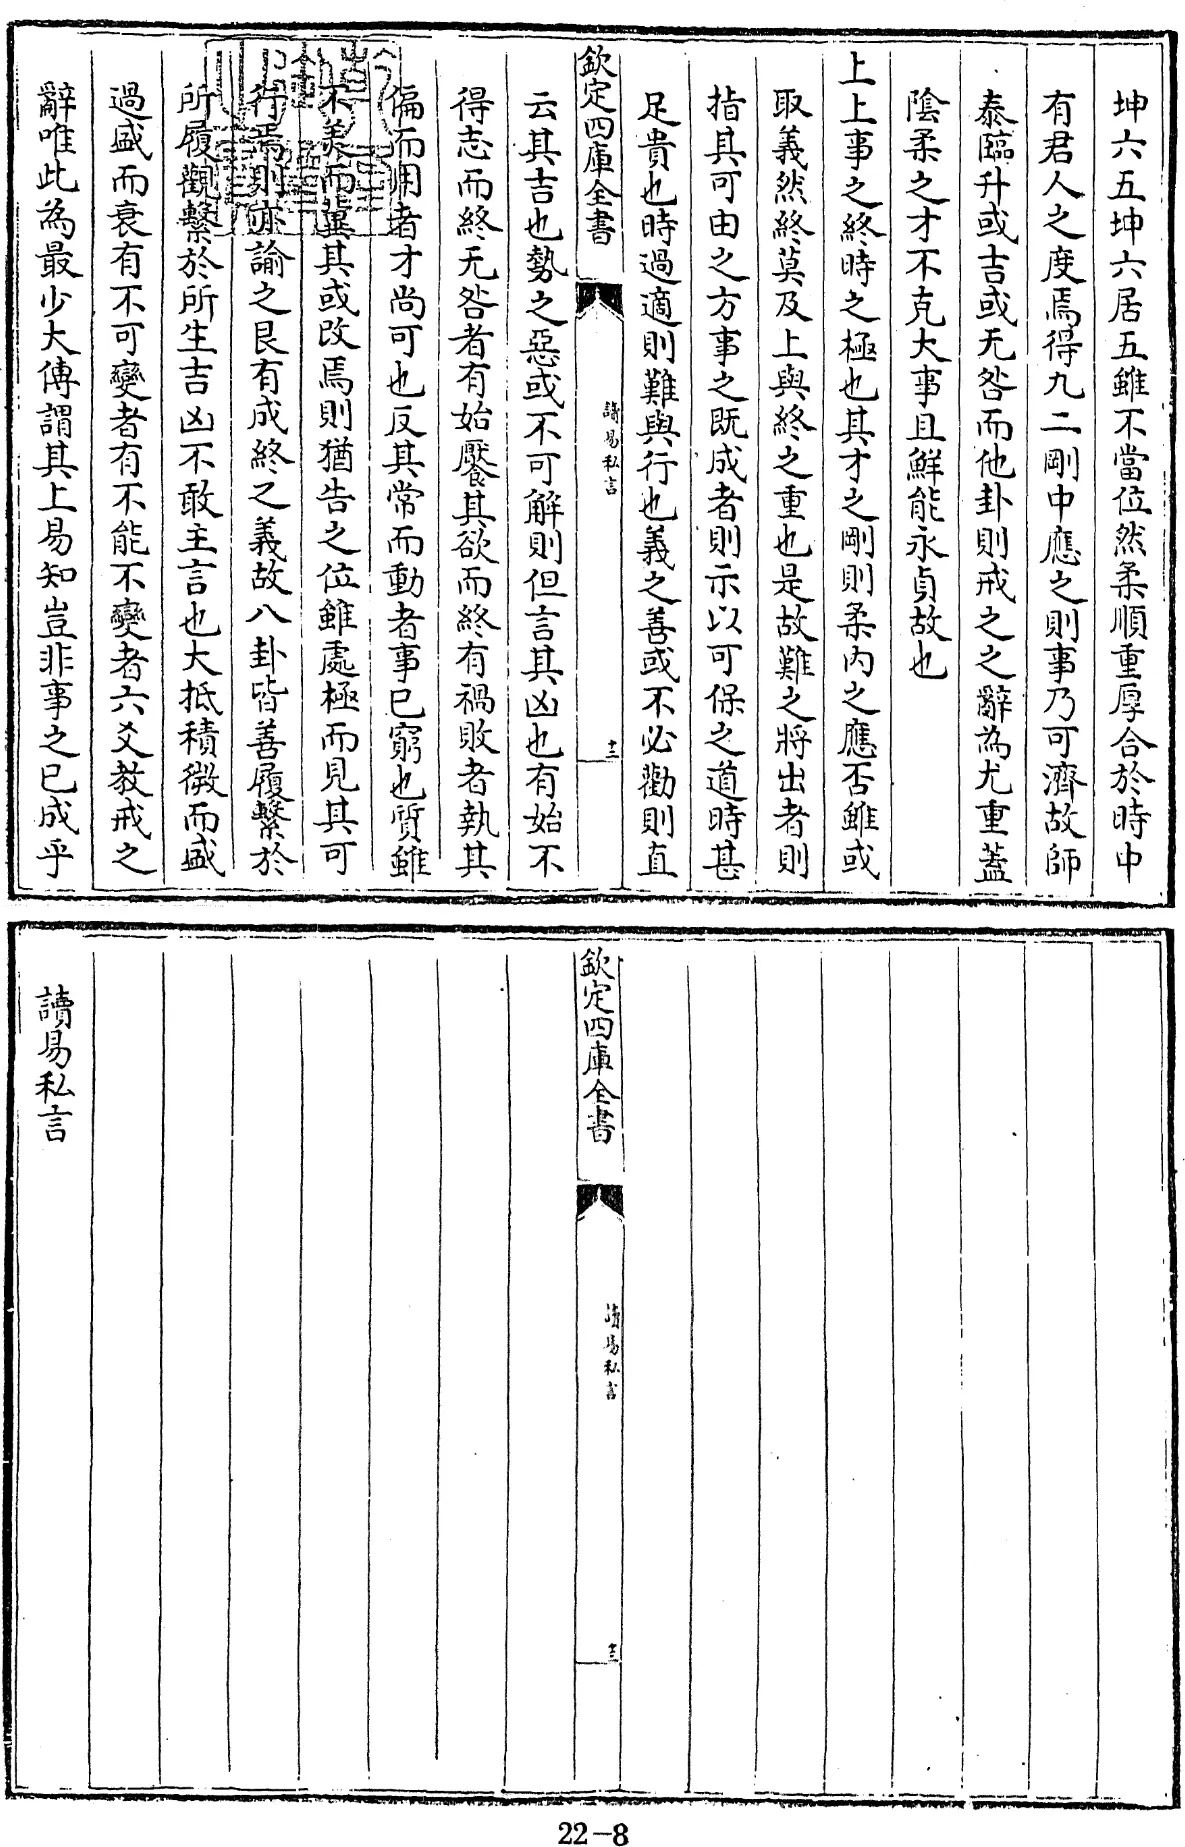 坤六五坤六居五雖不當位然柔順重厚合於時中
有君人之度焉得九二剛中應之則事乃可濟故師
泰臨升或吉或无咎而他卦則戒之之辭為尤重蓋
陰柔之才不克大事且鮮能永貞故也
上上事之終時之極也其才之剛則柔內之應否雖或
取義然終莫及上與終之重也是故難之將出者則
指其可由之方事之既成者則示以可保之道時甚
足貴也時過適則難與行也義之善或不必勸則直
欽定四庫全書
讀易私言
十二
云其吉也勢之惡或不可解則但言其凶也有始不
得志而終无咎者有始饜其欲而終有禍敗者執其
偏而用者才尚可也反其常而動者事已窮也質雖
不美而冀其或改焉則猶告之位雖處極而見其可
行焉則亦諭之艮有成終之義故八卦皆善履繫於
所履觀繫於所生吉凶不敢主言也大抵積微而盛
過盛而衰有不可變者有不能不變者六爻教戒之
辭唯此為最少大傳謂其上易知豈非事之已成乎
欽定四庫全書
讀易私言
十三
讀易私言
22-8